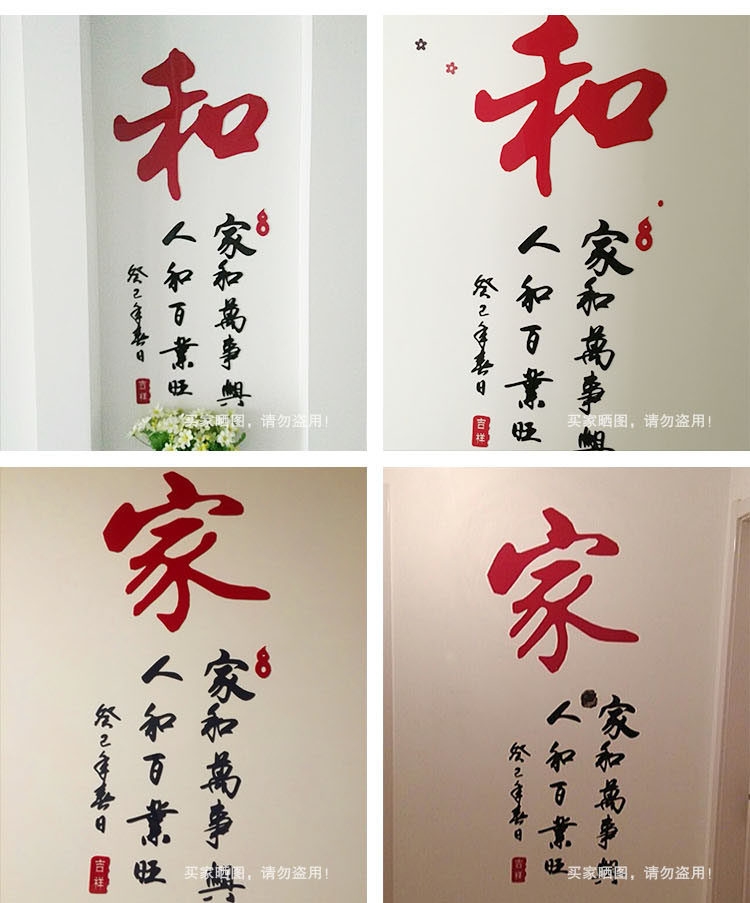 和
家和萬事興
人和百業旺
癸巳年春日
吉祥
买家晒图，请勿盗用！
和
家和萬事興
人和百業旺
癸巳年春日
吉祥
买家晒图，请勿盗用！
家
家和萬事興
人和百業旺
癸巳年春日
吉祥
买家晒图，请勿盗用！
家
家和萬事興
人和百業旺
癸巳年春日
吉祥
买家晒图，请勿盗用！